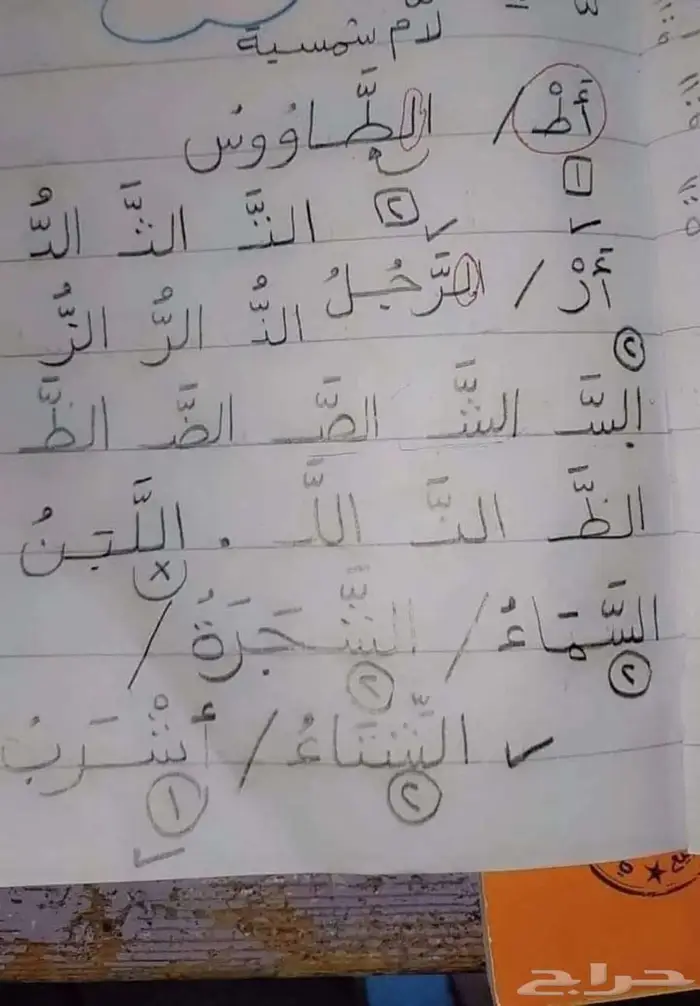 لام شمسية
أَطْ / الطَّاوُوسُ
١ ٢
التَّ الثَّ الدُّ
أَرْ / الرَّجُلُ الذُّ الرُّ الزُّ
٢
السَّ الشَّ الصَّ الضَّ الظَّ
الظَّ النَّ اللَّ . اللَّبَنُ
x
السَّمَاءُ / الشَّجَرَةُ /
٢ ٢
✓ الشِّتَاءُ / أَشْرَبُ
٢ ١
حراج